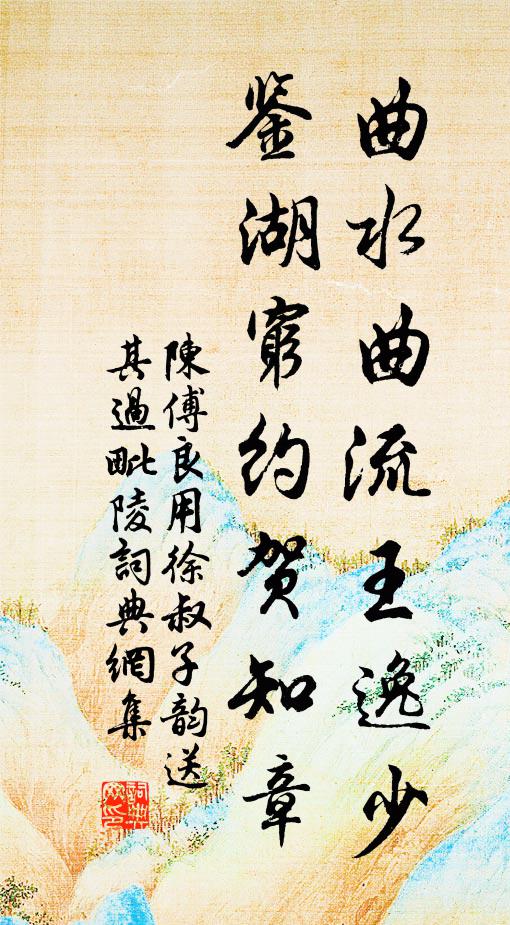 曲水曲流王逸少
鉴湖穷约贺知章
陳傅良用徐叔子韵送
其過毗陵詞典網集